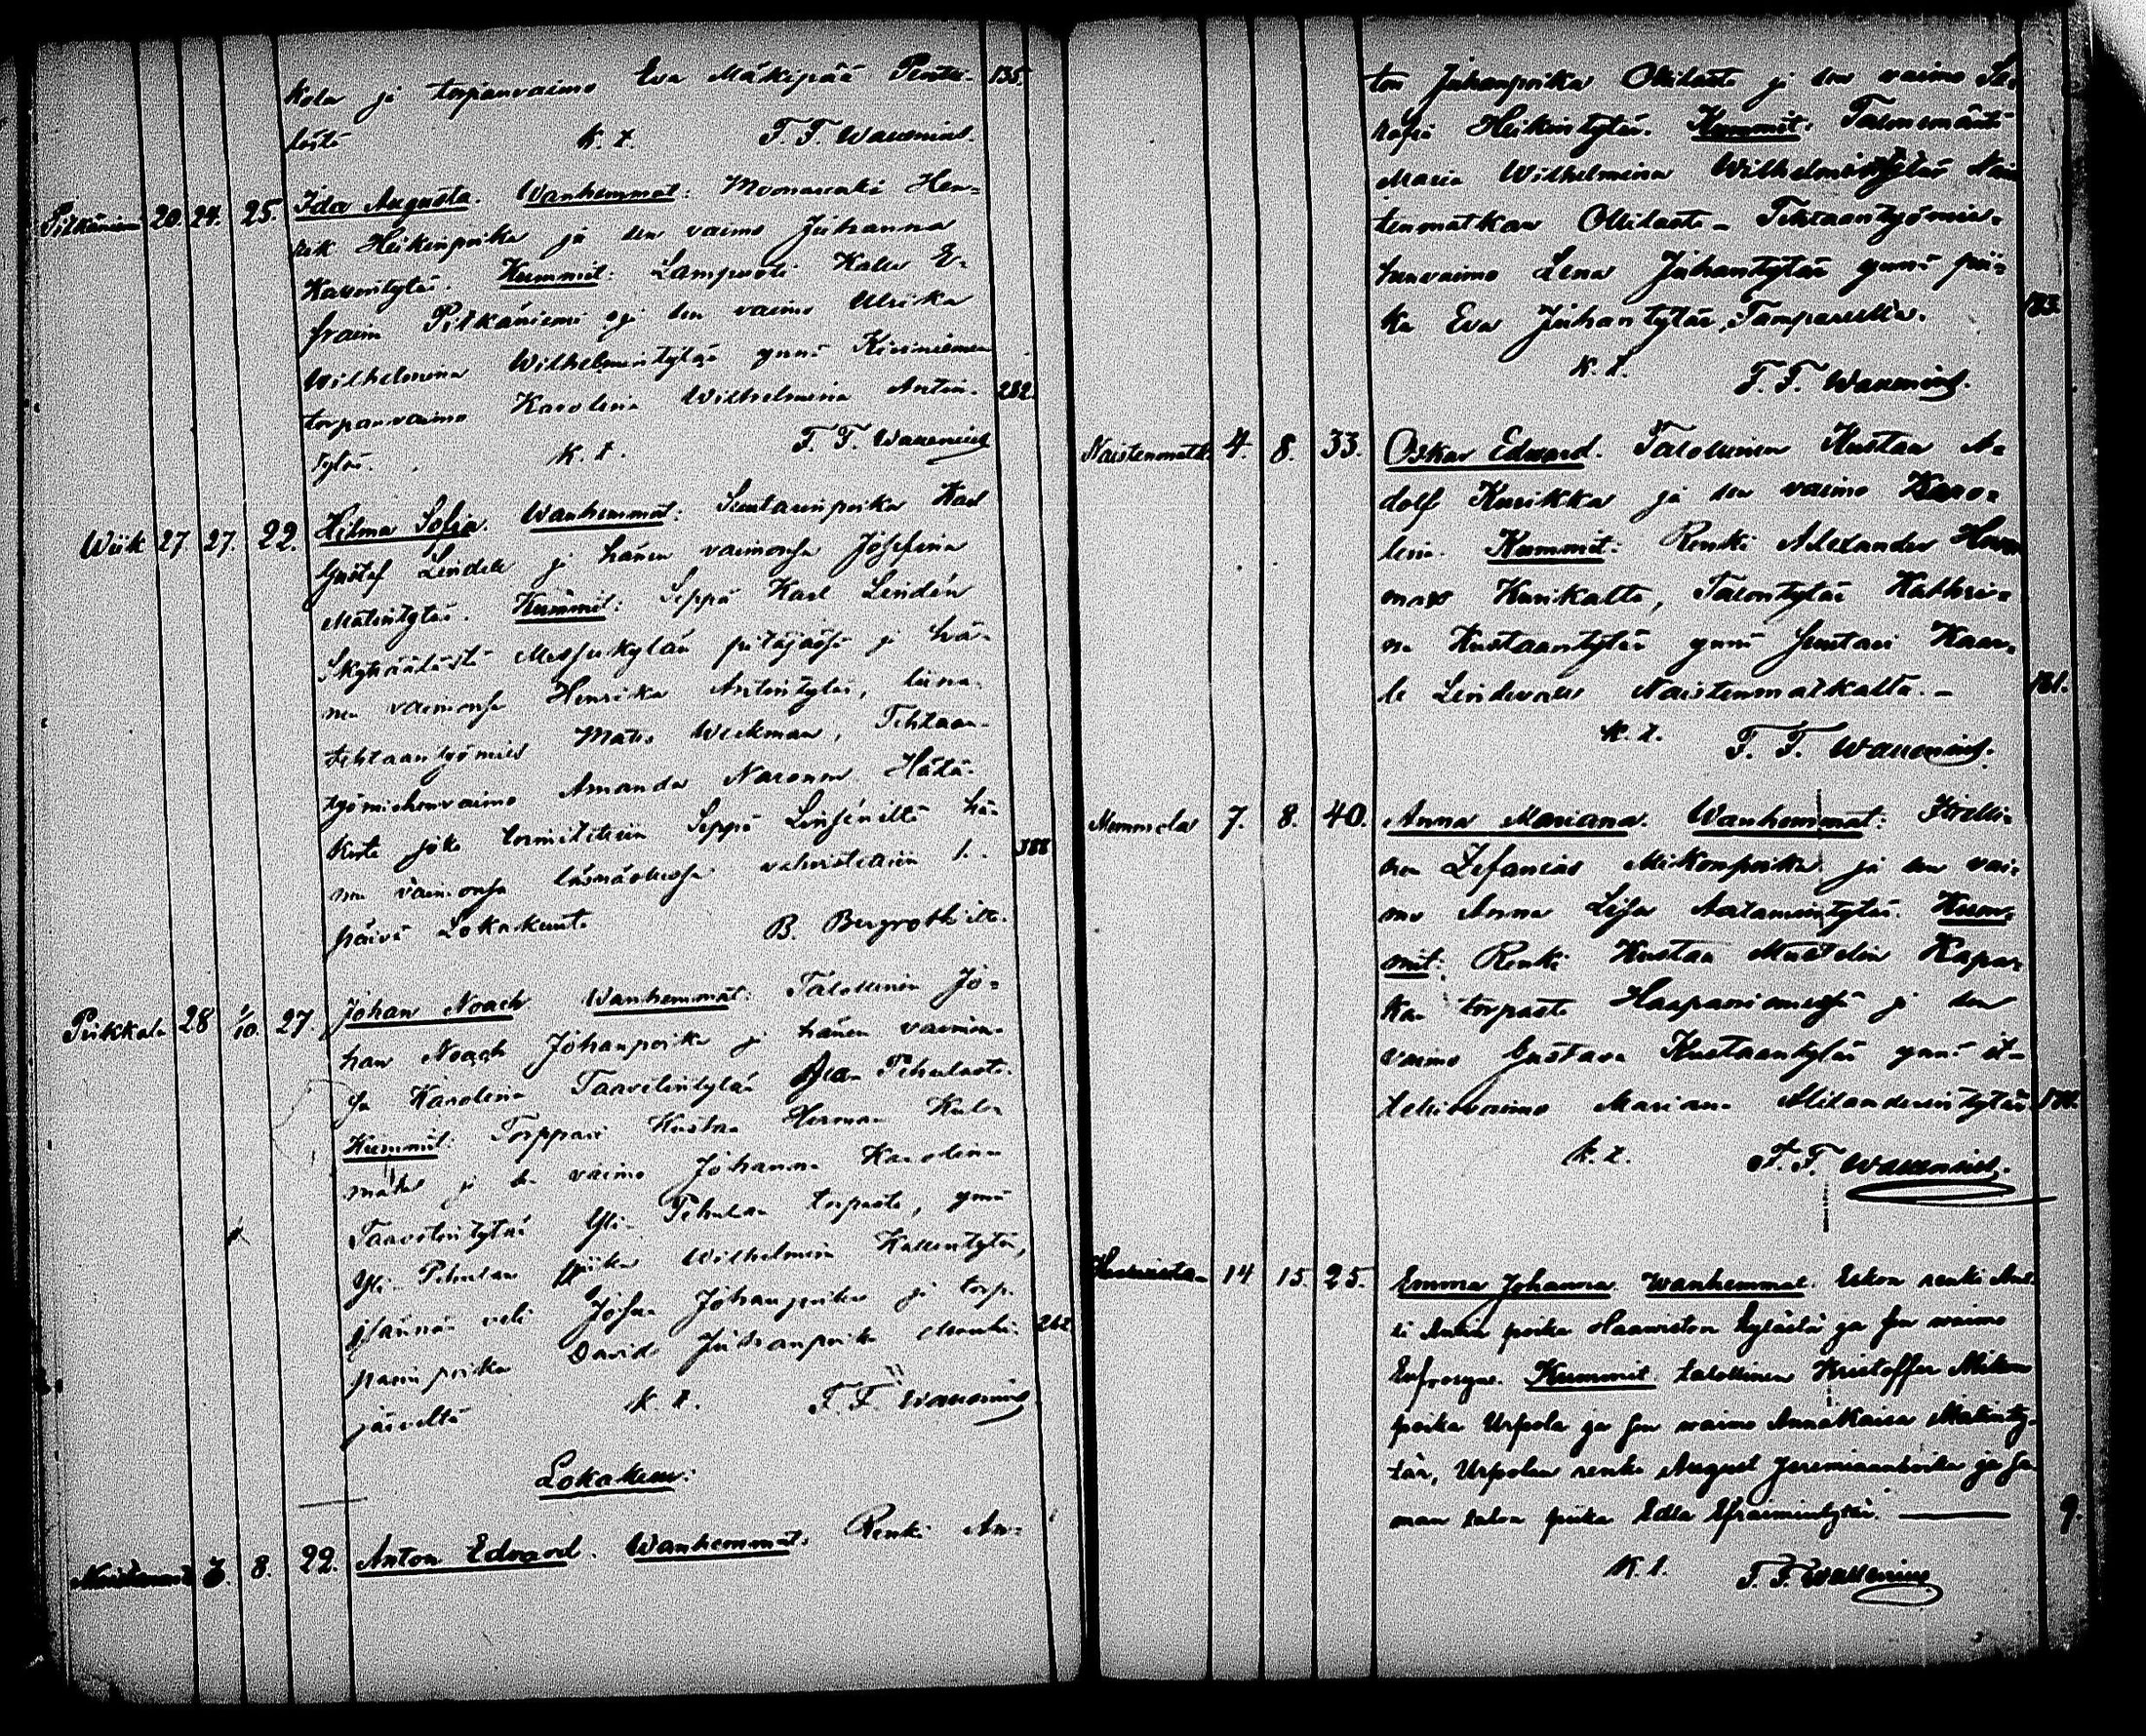 kola ja torpanvaimo Eva Mäkipää Pentu- 135.
lasta k. t. F. F. Wallenius.
Pitkäniemi 20. 24. 25. Ida Augusta. Wanhemmat: Muonarenki Hen-
rik Heikinpoika ja sen vaimo Juhanna
Kallentytär. Kummit: Lampuoti Kalle E-
fraim Pitkäniemi ja sen vaimo Ulrika
Wilhelmina Wilhelmintytär ynnä Kiviniemen
torpanvaimo Karolina Wilhelmina Antin- 282.
tytär. k. t. F. F. Wallenius
Wiik 27. 27. 22. Hilma Sofia. Wanhemmat: Suutarinpoika Karl
Gustaf Lindell ja hänen vaimonsa Josefina
Matintytär. Kummit: Seppä Karl Lindén
Messukylän pitäjässä ja hä-
nen vaimonsa Henrika Antintytär, liina-
tehtaantyömies Mats Wickman, Tehtaan-
työmiehenvaimo Amanda
joka toimitettiin Seppä hä-
nen vaimonsa läsnäollessa vahvistettiin 1. 388
päivä Lokakuuta B. Bergroth
Pirkkala 28 1/10. 27. Johan Noach Wanhemmat: Talollinen Jo-
han Noach Johanpoika ja hänen vaimon-
sa Karolina Taavetintytär Pehulasta.
Kummit: Torppari Kustaa Herman
ja sen vaimo Johanna Karolina
Taavetintytär Yli-Pehulan torpasta, ynnä
Yli-Pehulan piika Wilhelmina Kallentytär,
isännän veli Josua Johanpoika ja torp-
parin poika David Juhanpoika 262
järveltä k. t. F. F. Wallenius
Lokakuu.
8. 22. Anton Edvard. Wanhemmat: Renki An-
ton Juhanpoika Ollilasta ja sen vaimo Se-
rafia Heikintytär. Kummit: Talonemäntä
Maria Wilhelmina Wilhelmintytär Nais-
tenmatkan Ollilasta - Tehtaantyömie-
henvaimo Lena Juhantytär ynnä pii-
ka Eva Juhantytär Tampereelta. 183.
k. t. F. F. Wallenius.
Naistenmatk. 4. 8. 33. Oskar Edvard. Talollinen Kustaa A-
dolf Kurikka ja sen vaimo Karo-
lina. Kummit: Renki Alexander
Kurikalta, Talontytär Kathri-
na Kustaantytär ynnä suutari Kaar-
le Naistenmatkalta. - 181.
k. t. F. F. Wallenius.
Nunnela 7. 8. 40. Anna Mariana. Wanhemmat: Itselli-
nen Zefanias Mikonpoika ja sen vai-
mo Anna Lisa Aatamintytär. Kum-
mit: Renki Kustaa Mustelin
torpasta Haapaniemessä ja sen
vaimo Gustava Kustaantytär ynnä it-
sellisvaimo Mariana Alexanderintytär
k. t. F. F. Wallenius.
14 15. 25. Emma Johanna Wanhemmat. Eskon renki An-
ti Antin poika Haaviston kylästä ja sen waimo
Eufrosyne. Kummit talollinen Kristoffer Mikon
poika Urpola ja sen waimo Annakaisa Matinty-
tär, Urpolan renki August Jeremiaanpoika ja sa-
man talon piika Edla Efraimintytär. 9.
k. t. F. F. Wallenius